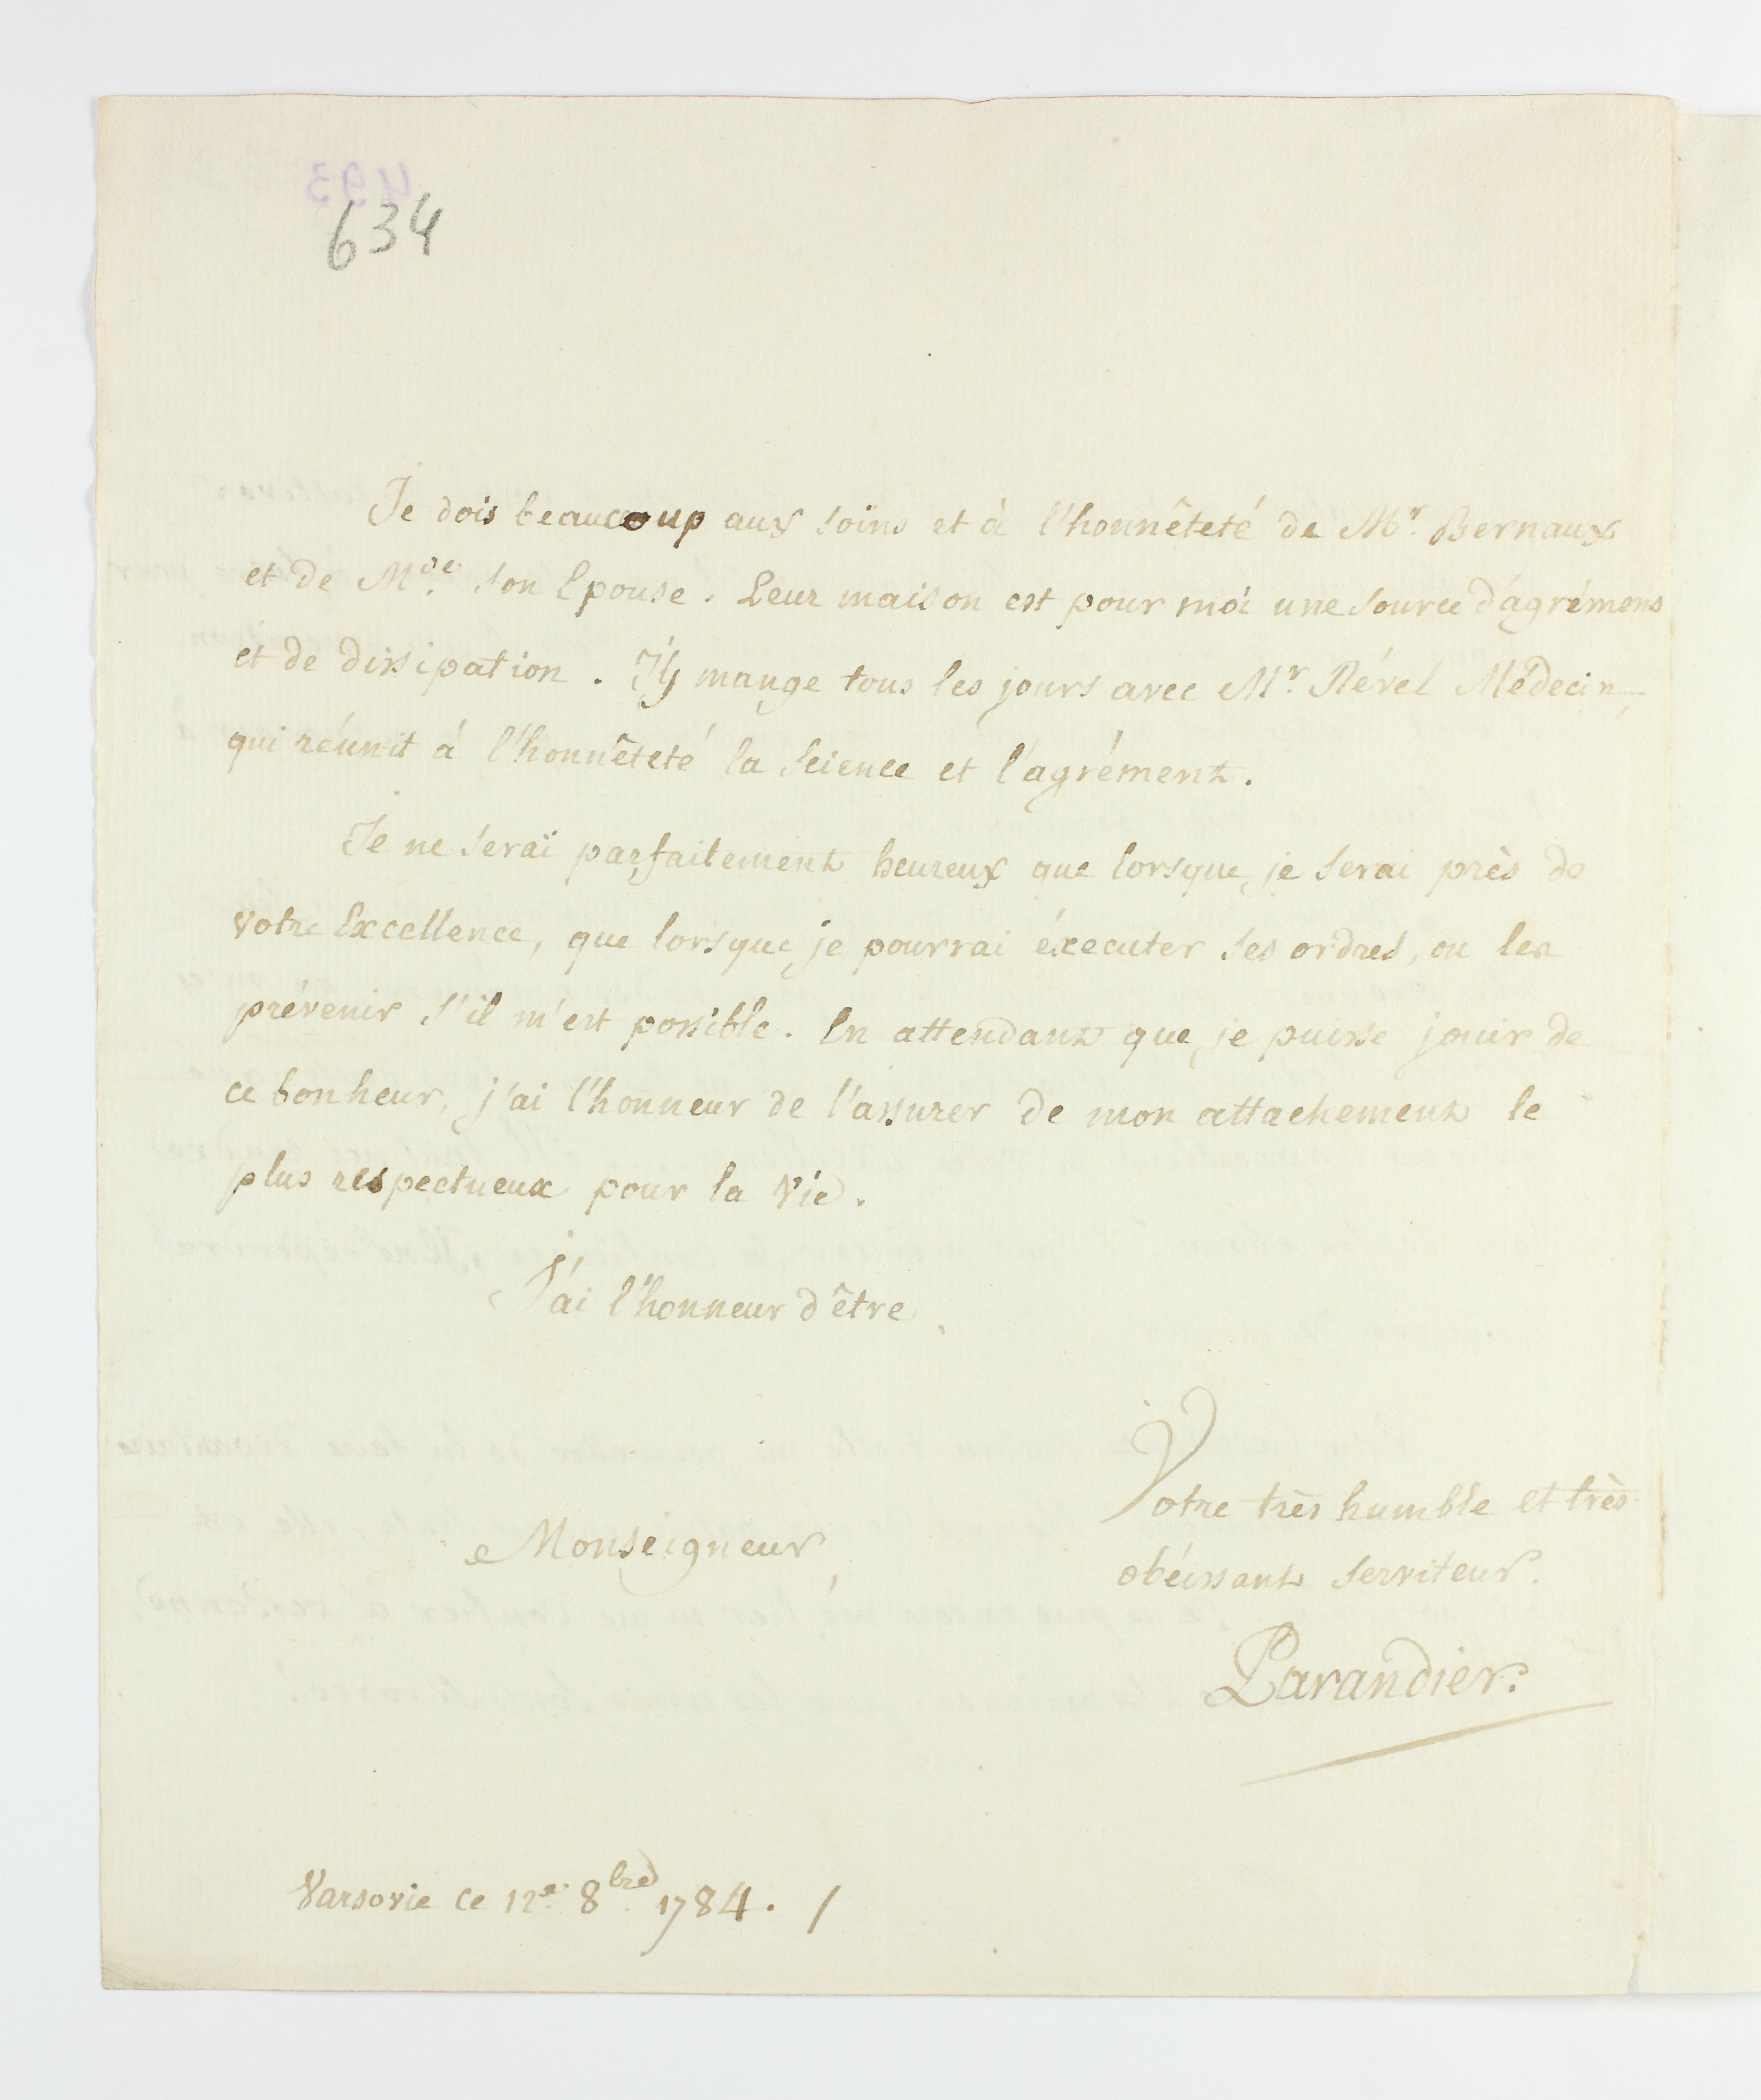 634
Je dois beaucoup aux soins et à l'honnêteté de Mr. Bernaux
et de Mde. son Epouse. Leur maison est pour moi une source d'agrémens
et de dissipation. J'y mange tous les jours avec Mr. Rével Médecin,
qui réunit à l'honnêteté la Science et l'agrément.
Je ne seraï parfaitement heureux que lorsque je serai près de
Votre Excellence, que lorsque je pourrai éxecuter ses ordres, ou les
prévenir s'il m'est possible. En attendant que je puisse jouir de
ce bonheur, j'ai l'honneur de l'assurer de mon attachement le
plus respectueux pour la Vie.
J'ai l'honneur d'être
Monseigneur,
Votre très humble et très
obéissant Serviteur.
Parandier.
Varsovie ce 12e. 8bre. 1784. /